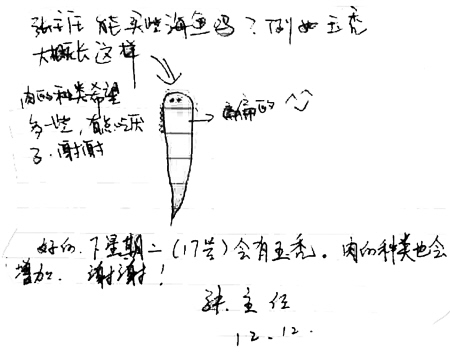 张主任 能买些海鱼吗？例如玉秃
大概长这样
肉的种类希望
多一些，有点吃厌
了.谢谢
扁扁的 ^^
好的.下星期二(17号)会有玉秃。肉的种类也会
增加. 谢谢！
张主任
12.12.